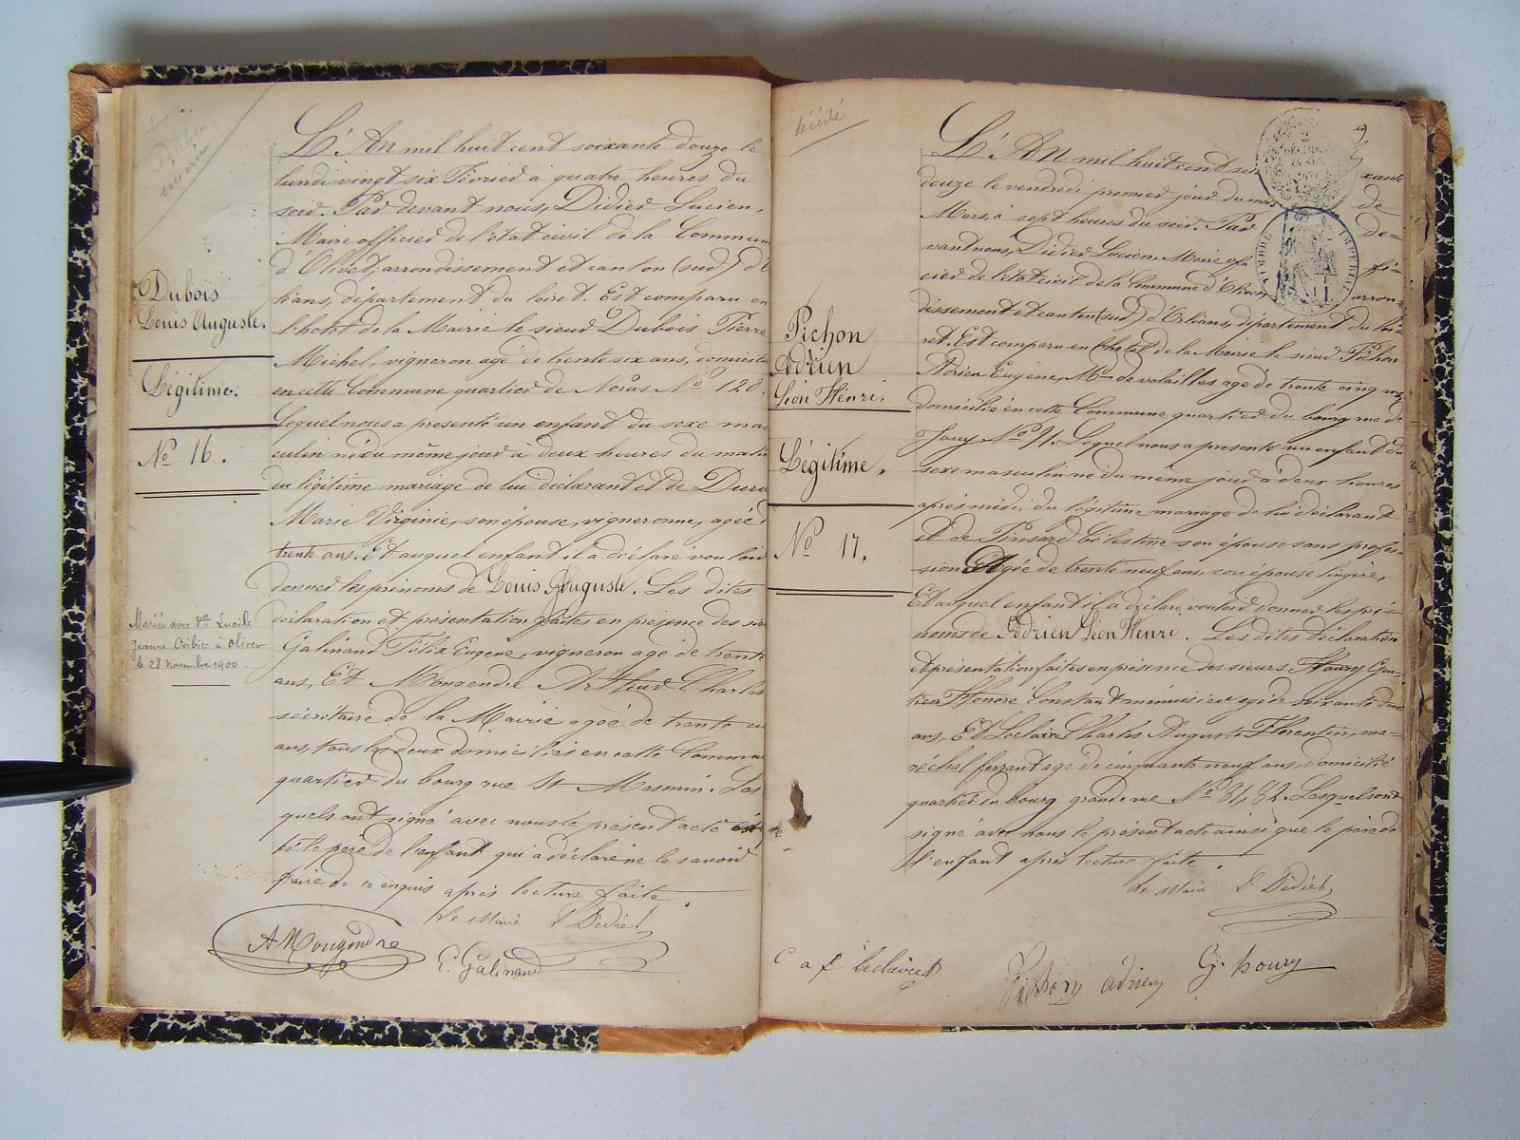 Dubois
Louis Auguste.
Légitime.
No 16.
Mariée avec Dlle Lucile
Jeanne Corbier à Olivet
le 28 novembre 1900
L'An mil huit cent soixante douze le
lundi vingt six Février à quatre heures du
soir. Par devant nous, Didier Lucien,
Maire officier de l'état civil de la Commune
d'Olivet, arrondissement et canton (sud) d'Or
léans, département du loiret. Est comparu en
l'hotel de la Mairie le sieur Dubois Pierre
Michel, vigneron agé de trente six ans, domicilié
en cette Commune quartier de No 120.
Lequel nous a présenté un enfant du sexe mas
culin né du même jour à deux heures du matin
du légitime mariage de lui déclarant et de
Marie Virginie, son épouse, vigneronne, agée de
trente ans. Et auquel enfant il a déclaré vouloir
donner les prénoms de Louis Auguste. Les dites
déclaration et présentation faites en présence des sieurs
Galinand Félix Eugène, vigneron agé de trente
ans, Et Mougendre Arthur Charles
sécrétaire de la Mairie agé de trente
ans, tous les deux domiciliés en cette Commune
quartier du bourg rue St Mesmin. Les
quels ont signé avec nous le présent acte
le père de l'enfant qui a déclaré ne le savoir
faire de ce enquis après lecture faite.
Le Maire L Didier
A Mougendre
E. Galinand
décédé
Pichon
Adrien
Léon Henri.
Légitime.
No 17.
L'An mil huit cent soixante
douze le vendredi premier jour du mois de
Mars, à sept heures du soir. Par de=
vant nous, Didier Lucien, Maire offi=
cier de l'état civil de la Commune d'Olivet, arron=
dissement et canton (sud) d'Orléans, département du loi=
ret. Est comparu en l'hotel de la Mairie le sieur Pichon
Adrien Eugène, Md de volailles agé de trente cinq ans
domicilié en cette Commune quartier du bourg rue de
Jouy No 71. Lequel nous a présenté un enfant du
sexe masculin né du même jour à deux heures
après midi du légitime mariage de lui déclarant
et de Pinsard Célestine son épouse sans profes=
sion Agée de trente neuf ans, son épouse
Et auquel enfant il a déclaré vouloir donner les pré=
noms de Adrien Léon Henri. Les dites déclaration
et présentation faites en présence des sieurs Houry
Honoré Constant menuisier agé de soixante deux
ans, Et Leclaire Charles Auguste Florentin, ma=
réchal ferrant agé de cinquante neuf ans, domicilié
quartier du bourg grande rue No 31, 82. Lesquels ont
signé avec nous le présent acte ainsi que le père de
l'enfant après lecture faite.
Le Maire L Didier
C a f leclaire
Pichon Adrien
G. houry
TIMBRE IMPERIAL